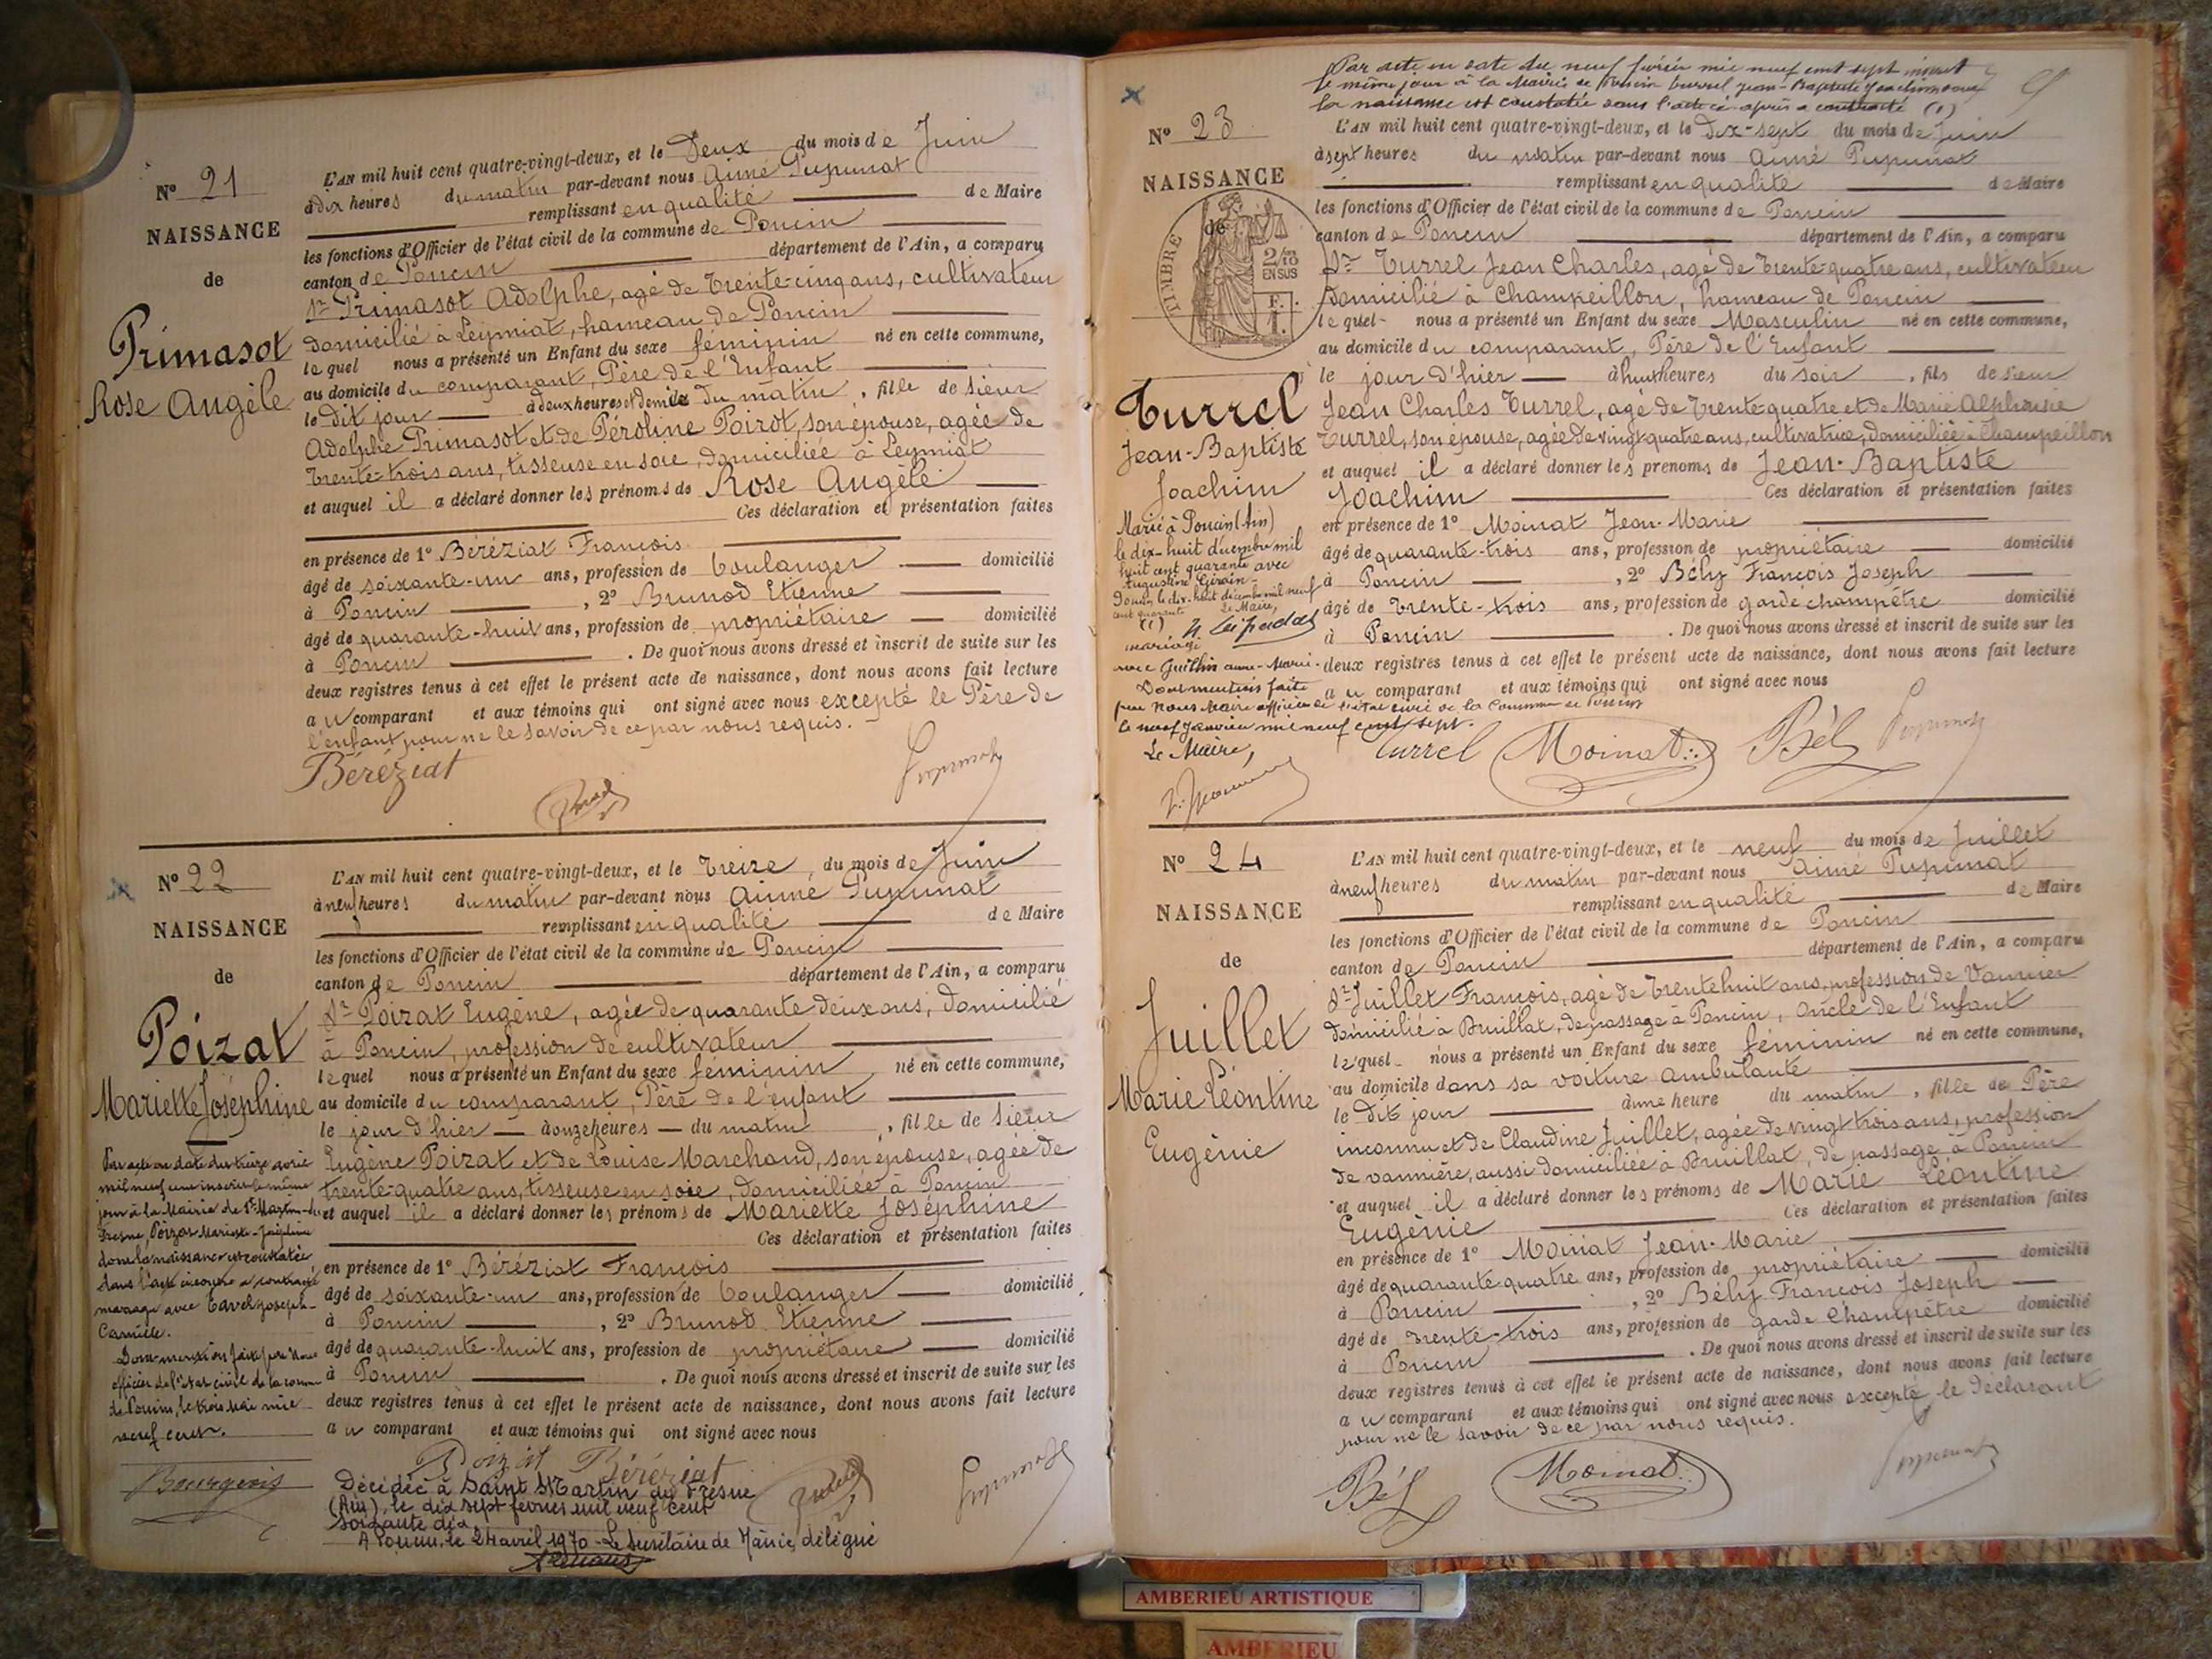 N° 21
NAISSANCE
de
Primasot
Rose Angèle
L'AN mil huit cent quatre-vingt-deux, et le Deux du mois de Juin
à dix heures du matin par-devant nous Aimé Pupunat
remplissant en qualité de Maire
les fonctions d'Officier de l'état civil de la commune de Poncin
canton de Poncin département de l'Ain, a comparu
Sr Primasot Adolphe, agé de trente-cinq ans, cultivateur
domicilié à Leymiat, hameau de Poncin
lequel nous a présenté un Enfant du sexe féminin né en cette commune,
au domicile du comparant, Père de l'Enfant
le dit jour à deux heures et demie du matin, fille de sieur
Adolphe Primasot et de Péroline Poirot, son épouse, agée de
trente-trois ans, tisseuse en soie, domiciliée à Leymiat
et auquel il a déclaré donner les prénoms de Rose Angèle
Ces déclaration et présentation faites
en présence de 1° Béréziat François
âgé de soixante-un ans, profession de boulanger domicilié
à Poncin , 2° Brunod Etienne
âgé de quarante-huit ans, profession de propriétaire domicilié
à Poncin . De quoi nous avons dressé et inscrit de suite sur les
deux registres tenus à cet effet le présent acte de naissance, dont nous avons fait lecture
au comparant et aux témoins qui ont signé avec nous excepté le Père de
l'enfant pour ne le savoir de ce par nous requis.
Béréziat
N° 22
NAISSANCE
de
Poizat
Mariette Joséphine
Par acte en date du treize avril
mil neuf cent inscrit le même
jour à la Mairie de St Martin-du
Fresne, Poizat Mariette-Joséphine
dont la naissance est constatée
dans l'acte ci-contre a contracté
mariage avec Tavel Joseph-
Camille.
Dont mention faite par Nous
officier de l'état civil de la commune
de Poncin, le trois Mai mil
neuf cent.
Bourgeois
L'AN mil huit cent quatre-vingt-deux, et le treize du mois de Juin
à neuf heures du matin par-devant nous Aimé Pupunat
remplissant en qualité de Maire
les fonctions d'Officier de l'état civil de la commune de Poncin
canton de Poncin département de l'Ain, a comparu
Sr Poizat Eugène, agée de quarante deux ans, domicilié
à Poncin, profession de cultivateur
lequel nous a présenté un Enfant du sexe féminin né en cette commune,
au domicile du comparant, Père de l'enfant
le jour d'hier à onze heures du matin, fille de sieur
Eugène Poizat et de Louise Marchand, son épouse, agée de
trente-quatre ans, tisseuse en soie, domiciliée à Poncin
et auquel il a déclaré donner les prénoms de Mariette Joséphine
Ces déclaration et présentation faites
en présence de 1° Béréziat François
âgé de soixante-un ans, profession de boulanger domicilié
à Poncin , 2° Brunod Etienne
âgé de quarante-huit ans, profession de propriétaire domicilié
à Poncin . De quoi nous avons dressé et inscrit de suite sur les
deux registres tenus à cet effet le présent acte de naissance, dont nous avons fait lecture
au comparant et aux témoins qui ont signé avec nous
Poizat Béréziat
Décédée à Saint Martin du Fresne
(Ain), le dix sept février mil neuf cent
soixante dix
A Poncin, le 24 avril 1970 - Le Secrétaire de Mairie délégué
Par acte en date du neuf février mil neuf cent sept inscrit
le même jour à la Mairie de Poncin Turrel Jean-Baptiste Joachim dont
la naissance est constatée dans l'acte ci-après a contracté (1)
N° 23
NAISSANCE
de
TIMBRE
2/10
EN SUS
Turrel
Jean-Baptiste
Joachim
Marié à Poncin (Ain)
le dix-huit décembre mil
huit cent quarante avec
Augustine Girain
Poncin, le dix-huit décembre mil neuf
cent quarante
Le Maire,
(1)
mariage
avec Guillin Anne-Marie.
Dont mention faite
par Nous Maire officier de l'état civil de la Commune de Poncin
le neuf Janvier mil neuf cent sept.
Le Maire,
L'AN mil huit cent quatre-vingt-deux, et le dix-sept du mois de Juin
à sept heures du matin par-devant nous Aimé Pupunat
remplissant en qualité de Maire
les fonctions d'Officier de l'état civil de la commune de Poncin
canton de Poncin département de l'Ain, a comparu
Sr Turrel Jean Charles, agé de trente-quatre ans, cultivateur
domicilié à Champeillon, hameau de Poncin
lequel nous a présenté un Enfant du sexe Masculin né en cette commune,
au domicile du comparant, Père de l'Enfant
le jour d'hier à huit heures du soir, fils de sieur
Jean Charles Turrel, agé de trente-quatre et de Marie Alphonsie
Turrel, son épouse, agée de vingt quatre ans, cultivatrice, domiciliée à Champeillon
et auquel il a déclaré donner les prénoms de Jean-Baptiste
Joachim Ces déclaration et présentation faites
en présence de 1° Moinat Jean-Marie
âgé de quarante-trois ans, profession de propriétaire domicilié
à Poncin , 2° Bély François Joseph
âgé de trente-trois ans, profession de garde champêtre domicilié
à Poncin . De quoi nous avons dressé et inscrit de suite sur les
deux registres tenus à cet effet le présent acte de naissance, dont nous avons fait lecture
au comparant et aux témoins qui ont signé avec nous
Turrel Moinat Bély
N° 24
NAISSANCE
de
Juillet
Marie Léontine
Eugénie
L'AN mil huit cent quatre-vingt-deux, et le neuf du mois de Juillet
à neuf heures du matin par-devant nous Aimé Pupunat
remplissant en qualité de Maire
les fonctions d'Officier de l'état civil de la commune de Poncin
canton de Poncin département de l'Ain, a comparu
Sr Juillet François, agé de trente huit ans, profession de Vannier
domicilié à Bruillat, de passage à Poncin, oncle de l'Enfant
lequel nous a présenté un Enfant du sexe féminin né en cette commune,
au domicile dans sa voiture ambulante
le dit jour à une heure du matin, fille de Père
inconnu et de Claudine Juillet, agée de vingt trois ans, profession
de vannière, aussi domiciliée à Bruillat, de passage à Poncin
et auquel il a déclaré donner les prénoms de Marie Léontine
Eugénie Ces déclaration et présentation faites
en présence de 1° Moinat Jean-Marie
âgé de quarante-quatre ans, profession de propriétaire domicilié
à Poncin , 2° Bély François Joseph
âgé de trente-trois ans, profession de garde champêtre domicilié
à Poncin . De quoi nous avons dressé et inscrit de suite sur les
deux registres tenus à cet effet le présent acte de naissance, dont nous avons fait lecture
au comparant et aux témoins qui ont signé avec nous excepté le déclarant
pour ne le savoir de ce par nous requis.
Bély Moinat
AMBERIEU ARTISTIQUE
AMBERIEU